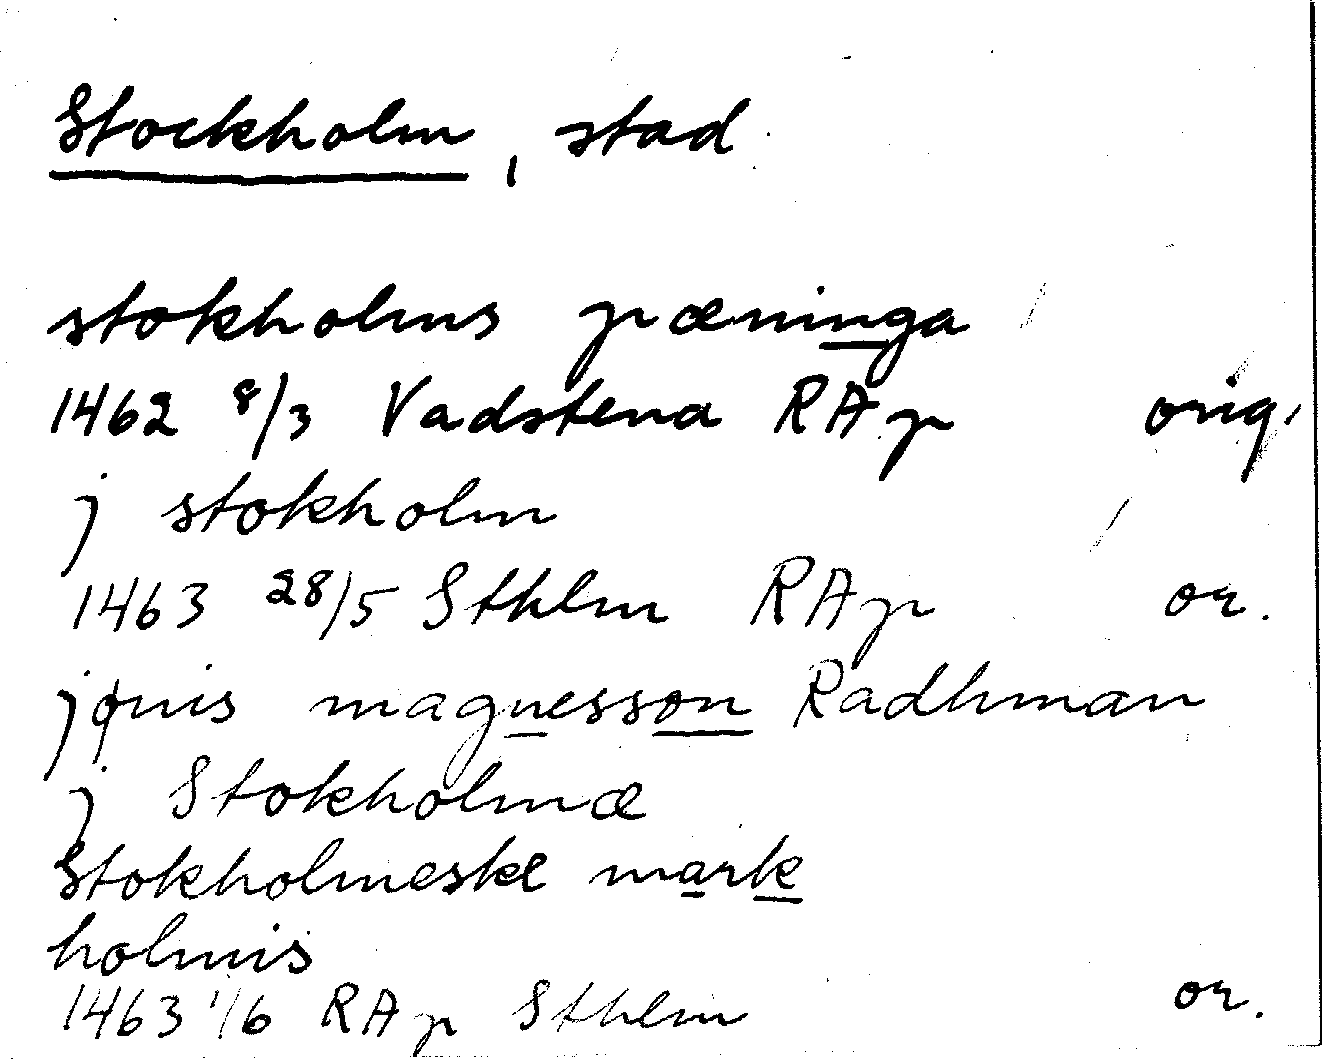 Stockholm, stad
stokholms pæninga
1462 8/3 Vadstena RAp orig.
j stokholm
1463 28/5 Sthlm RAp or.
jønis magnesson Radhman
j Stokholmæ
Stokholmeske mark
holmis
1463 1/6 RAp Sthlm or.